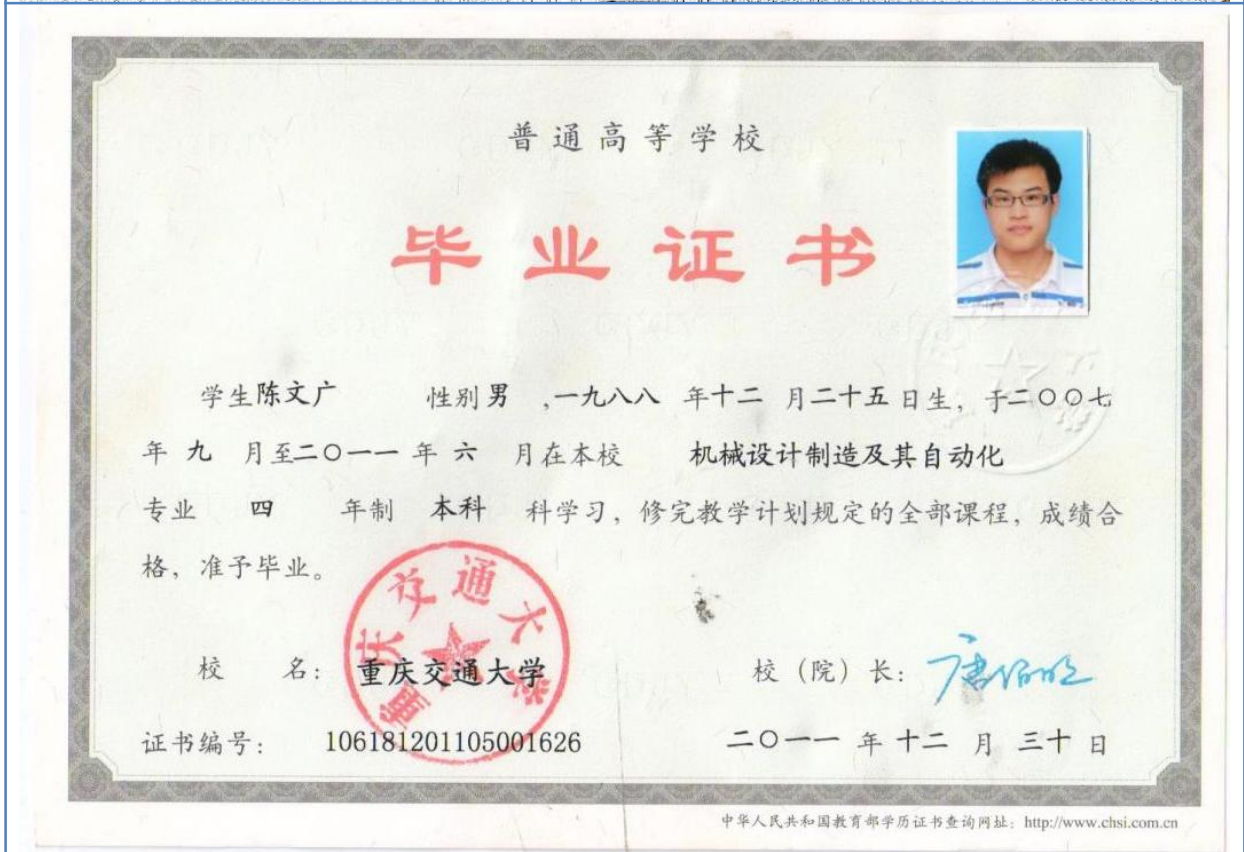 普通高等学校
毕业证书
学生陈文广 性别男,一九八八年十二月二十五日生,于二〇〇七
年九月至二〇一一年六月在本校 机械设计制造及其自动化
专业 四 年制 本科 科学习,修完教学计划规定的全部课程,成绩合
格,准予毕业。
重庆交通大学
校 名: 重庆交通大学 校(院)长: 唐伯明
证书编号: 106181201105001626 二〇一一年十二月三十日
中华人民共和国教育部学历证书查询网址:http://www.chsi.com.cn